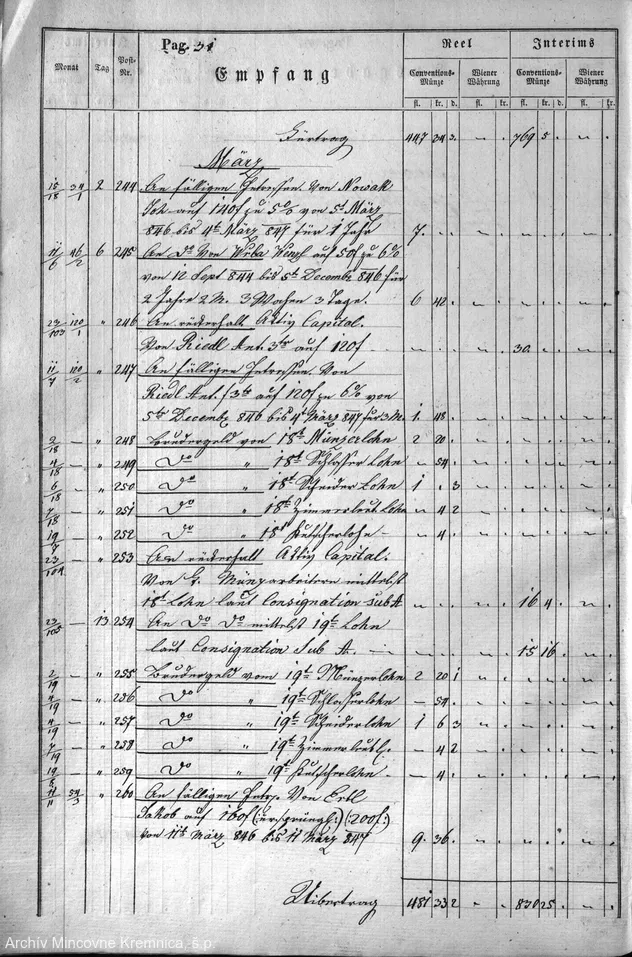 Pag. 31
Reel Interims
Monat Tag Post-Nr. Empfang Conventions-Münze Wiener Währung Conventions-Münze Wiener Währung
fl. kr. d. fl. kr. fl. kr. d. fl. kr.
Fürtrag 447 34 3 " " 769 5 . " .
März
2 244 An fälligen Interessen von Nowak
Joh auf 140f zu 5% von 5t März
846 bis 4t März 847 für 1 Jahr 7. " . " . " . . " .
6 245 An Do von Wrba auf 50f zu 6%
von 12 Sept 844 bis 5t Decembr 846 für
2 Jahre 2 M. 3 Wochen 3 Tage. 6 42 . " . " . . " .
" 246 An Aktiv Capital.
Von Riedl Ant. 3tr auf 120f " . . " . 30 . . " .
" 247 An fälligen Interessen von
Riedl Ant. 3tr auf 120f zu 6% von
5tr Decembr 846 bis 4t März 847 für 3 M. 1. 48 . " . " . . " .
2/18 — " 248 Brudergeld von 18t Münzerlohn 2 20 . " . " " . " "
4/18 — " 249 Do " 18t Schlosser Lohn " 54 . " . " " . " "
6/18 — " 250 Do " 18t Scheider Lohn 1 . 3 " . " . . " .
7/18 — " 251 Do " 18t Zimmerleut Lohn " 4 2 " . " " . " "
19/7 — " 252 Do " 18t Kutscherlohn " 4 . " . " . . " .
23/104 — " 253 An Aktiv Capital.
Von Münzarbeitern mittelst
18t Lohn laut Consignation sub A " . . " . 16 4 . " .
23/105 — 13 254 An Do Do mittelst 19t Lohn
laut Consignation Sub A. — . . " . 15 16 . " .
2/19 — " 255 Brudergeld vom 19t Münzerlohn 2 20 1 " . " . . " .
4/19 — " 256 Do " 19t Schlosserlohn — 54 . " . " " . " "
4/19 — " 257 Do " 19t Scheiderlohn 1 6 3 " . " . . " .
7/19 — " 258 Do " 19t Zimmerleutl. " 4 2 " . " " . " "
19/8 — " 259 Do " 19t Kutscherlohn — 4 . " . " . . " .
11/11 54/3 " 260 An fälligen Intrs. Von Ertl
Jakob auf 160f (:ursprüngl:) (:200f:)
von 11t März 846 bis 11 März 847 9. 36 . " . " . . " .
Uibertrag 481 33 2 " . 830 25 . " .
Archív Mincovne Kremnica, š.p.